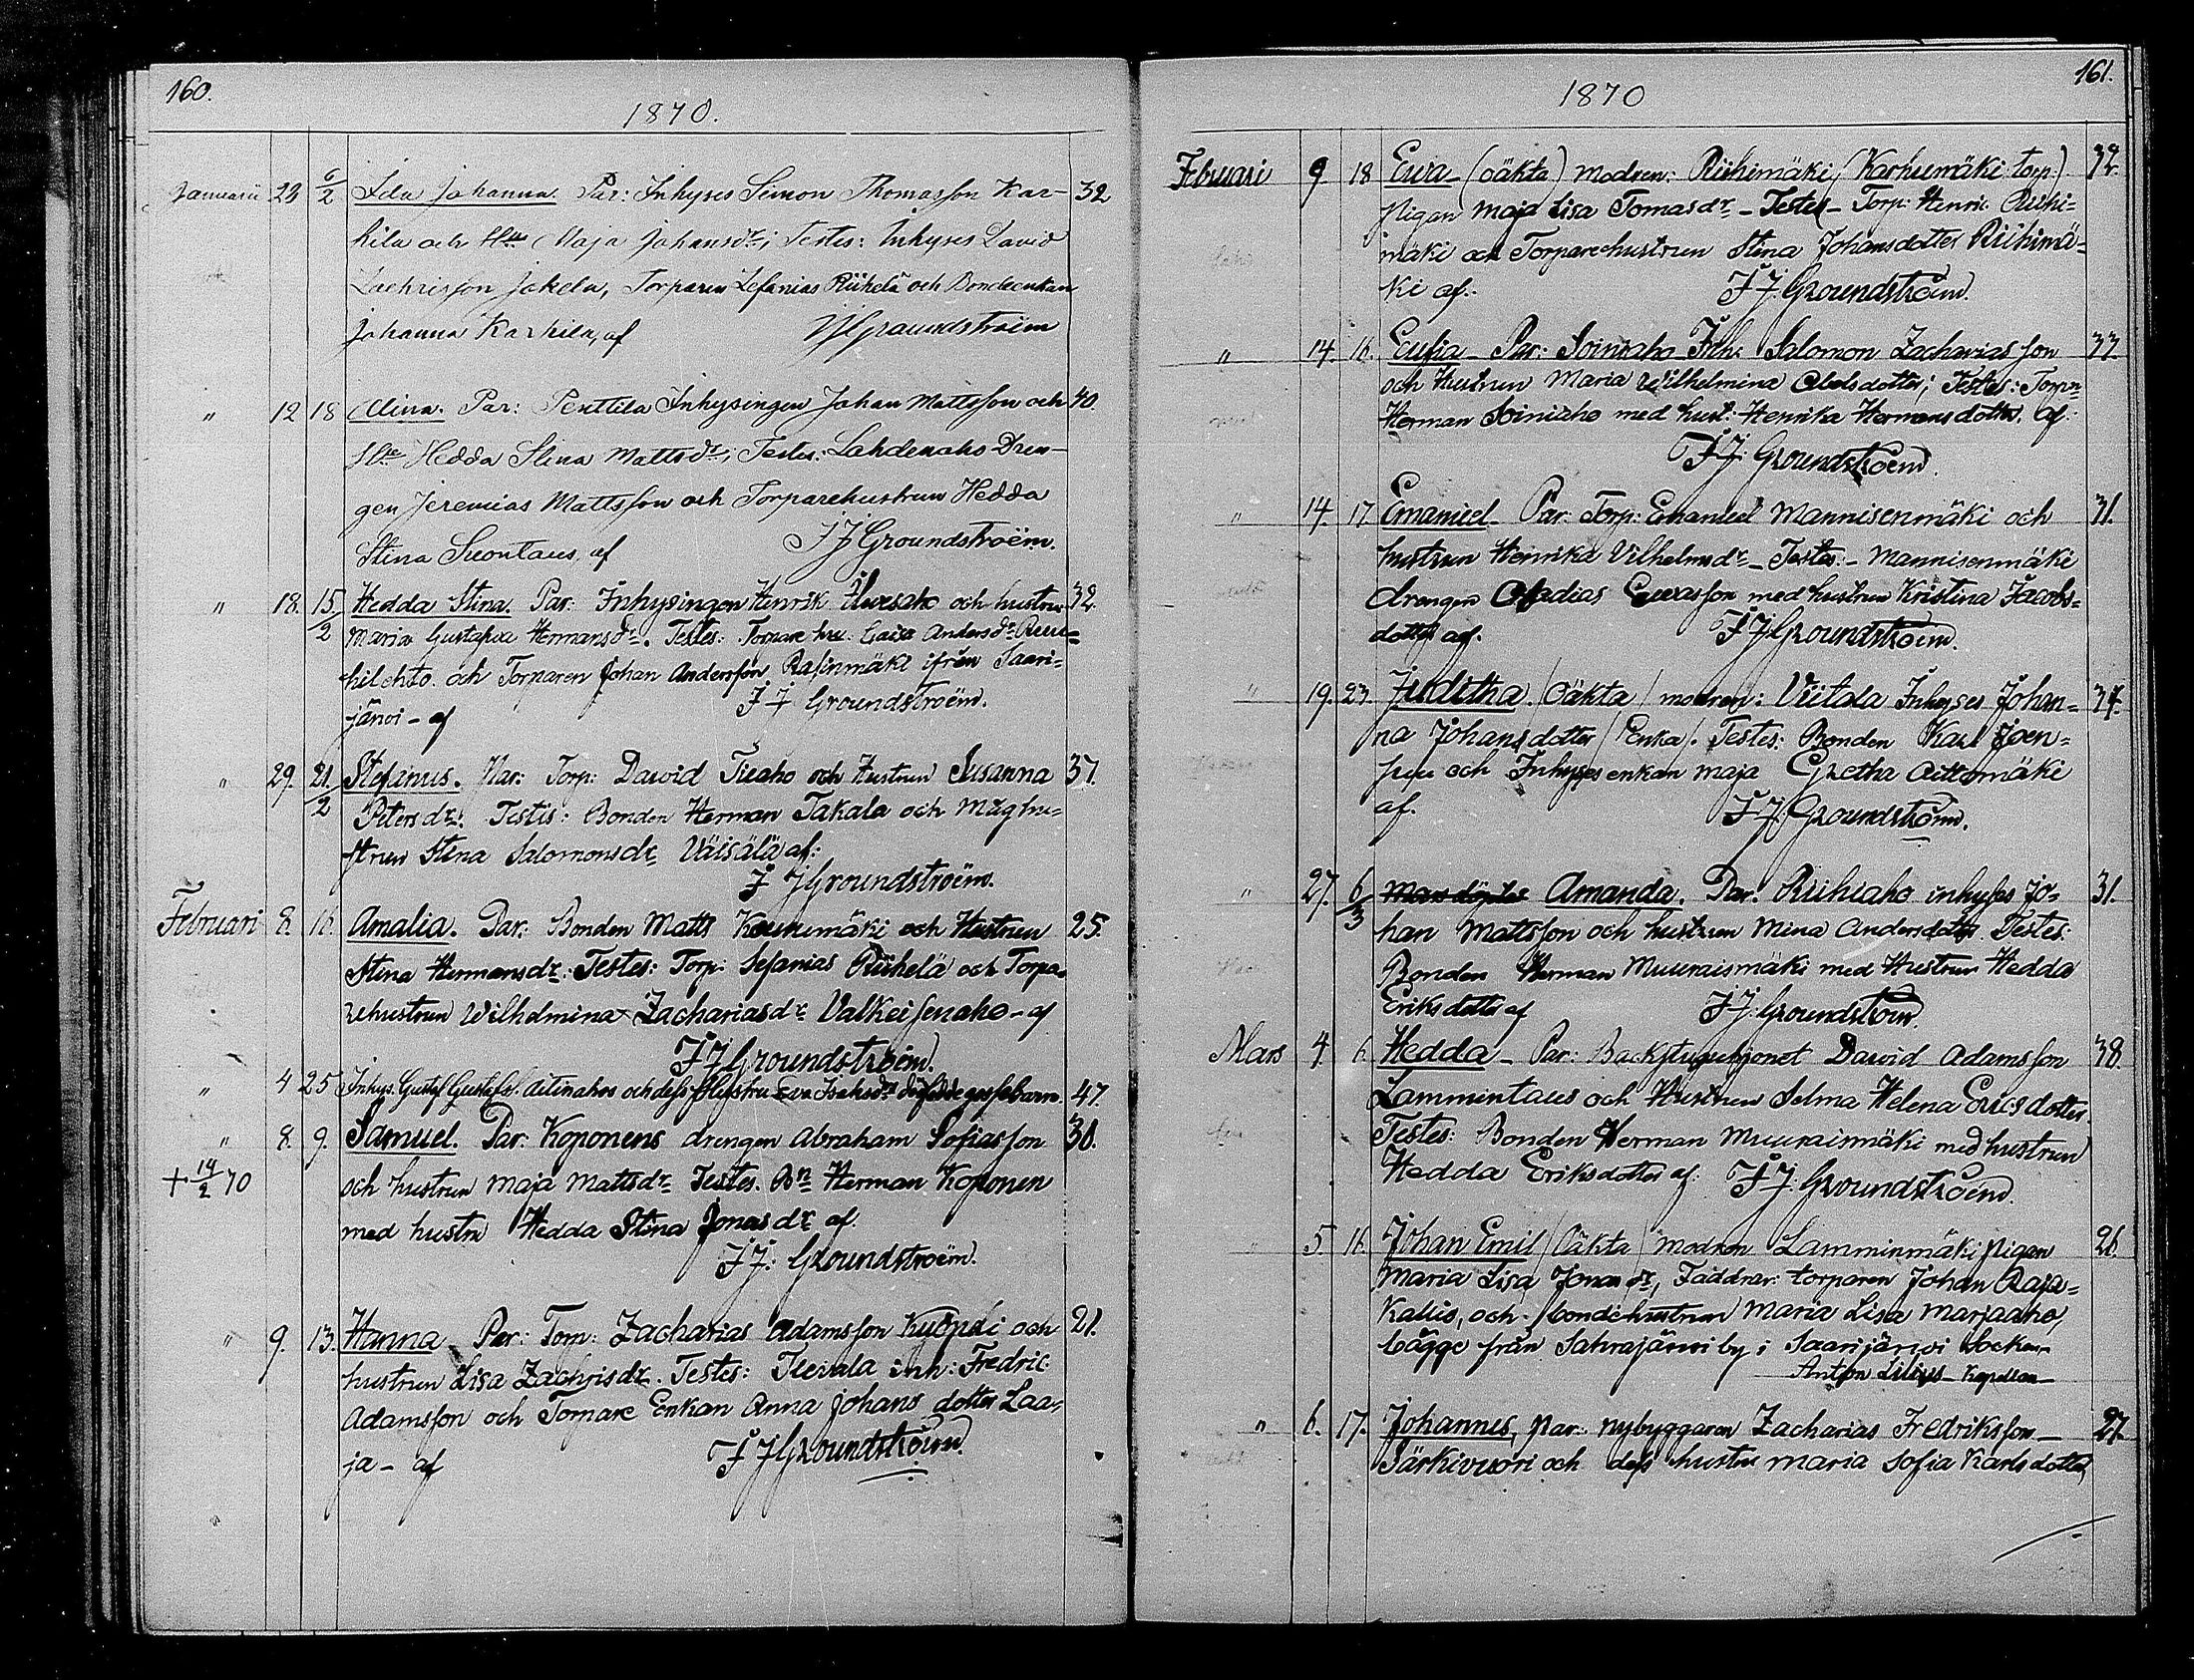 160.
1870.
Januarii 23 6/2 Ida Johanna. Par: Inhyses Simon Thomasson Kar- 32
hila och Hu Maja Johansdr; Testes: Inhyses David
Zachrisson Jokela, Torparen Sefanias Riihelä och Bondeenkan
Johanna Karhila, af JJGroundstroëm
" 12 18 Alina. Par: Penttila Inhysingen Johan Mattsson och 40.
Hu Hedda Stina Mattsdr; Testes: Lahdenaho Dren-
gen Jeremias Mattsson och Torparehustrun Hedda
Stina Suontaus, af JJGroundstroëm.
" 18. 15/2 Hedda Stina. Par: Inhysingen Henrik Ilvesaho och hustrun 32.
Maria Gustafva Hermansdr. Testes: Torpare hu: Caisa Andersdr Ruu-
hilehto och Torparen Johan Andersson Rasinmäki ifrån Saari-
järvi - af JJ Groundstroëm.
" 29. 21./2 Stefanus. Par: Torp: David Tiuaho och Hustrun Susanna 37.
Petersdr: Testis: Bonden Herman Takala och Måghu-
strun Stina Salomonsdr Väisälä af:
J JGroundstroëm.
Februari 8. 16. Amalia. Par: Bonden Matts Kaunumäki och Hustrun 25.
Stina Hermansdr: Testes: Torp: Sefanias Riihelä och Torpa-
rehustrun Wilhelmina Zachariasdr Valkeisenaho - af
JJGroundstroëm.
" 4 25 Inhys. Gustaf Gustafs. Aitinahos och dess Hustru Eva Isaksdr dödfödde gossebarn. 47.
" 8. 9. Samuel. Par: Koponens drengen Abraham Sofiasson 30.
+ 14/2 70 och hustrun Maja Mattsdr Testes. Bn Herman Koponen
med hustru Hedda Stina Jonasdr af.
JJ: Groundstroëm.
" 9. 13. Hanna Par: Torp: Zacharias Adamsson Kuoppi och 21.
hustrun Lisa Zachrisdr. Testes: Ilevala inh: Fredric
Adamsson och Torpare Enkan Anna Johans dotter Laa-
ja - af JJGroundstroëm.
161.
1870
Februari 9. 18 Ewa (oäkta) modren: Riihimäki (Karhumäki torp:) 32.
pigan Maja Lisa Tomasdr - Testes - Torp: Henric Riihi-
mäki och Torparehustrun Stina Johansdotter Riihimä-
ki af. JJ. Groundströem.
" 14. 16. Eufia Par: Soiniaho Inh: Salomon Zachariasson 33
och Hustrun Maria Wilhelmina Abelsdotter; Testes: Torpn
Herman Soiniaho med hust: Henrika Hermansdotter. af:
JJ: Groundstroem.
" 14. 17 Emanuel Par: Torp: Emanuel Mannisenmäki och 31.
hustrun Henrika Vilhelmsdr - Testes: - Mannisenmäki
drengen Abadias Ewasson med hustrun Kristina Jacobs-
dotter af. JJGroundstroem.
" 19. 23. Juditha. /Oäkta/ modren: Viitala Inhyses Johan- 34.
na Johansdotter /Enka/. Testes: Bonden Karl Joen-
suu och Inhyses enkan Maja Gretha Aittomäki
af. JJ. Groundstroëm.
" 27. 6/3 Amanda. Par. Riihiaho inhyses Jo- 31.
han Mattsson och hustrun Mina Andersdotter. Testes:
Bonden Herman Muuraismäki med Hustrun Hedda
Eriksdotter af JJ: Groundstroëm.
Mars 4. 6. Hedda - Par: Backstuguhjonet David Adamsson 38.
Lammintaus och Hustrun Selma Helena Ericsdotter.
Testes: Bonden Herman Muurainmäki med hustrun
Hedda Eriksdotter af. JJ: Groundstroëm.
" 5. 16. Johan Emil /Oäkta/ modren Lamminmäki pigan 26.
Maria Lisa Jonasdr, Faddrar: torparen Johan Raja-
kallio, och bondehustrun Maria Lisa Marjaaho,
bägge från Sahrajärvi by i Saarijärvi Socken
Anton Lilius - Kapellan -
" 6. 17. Johannes, par: nybyggaren Zacharias Fredriksson - 27.
Särkivuori och dess hustru Maria Sofia Karlsdotter,